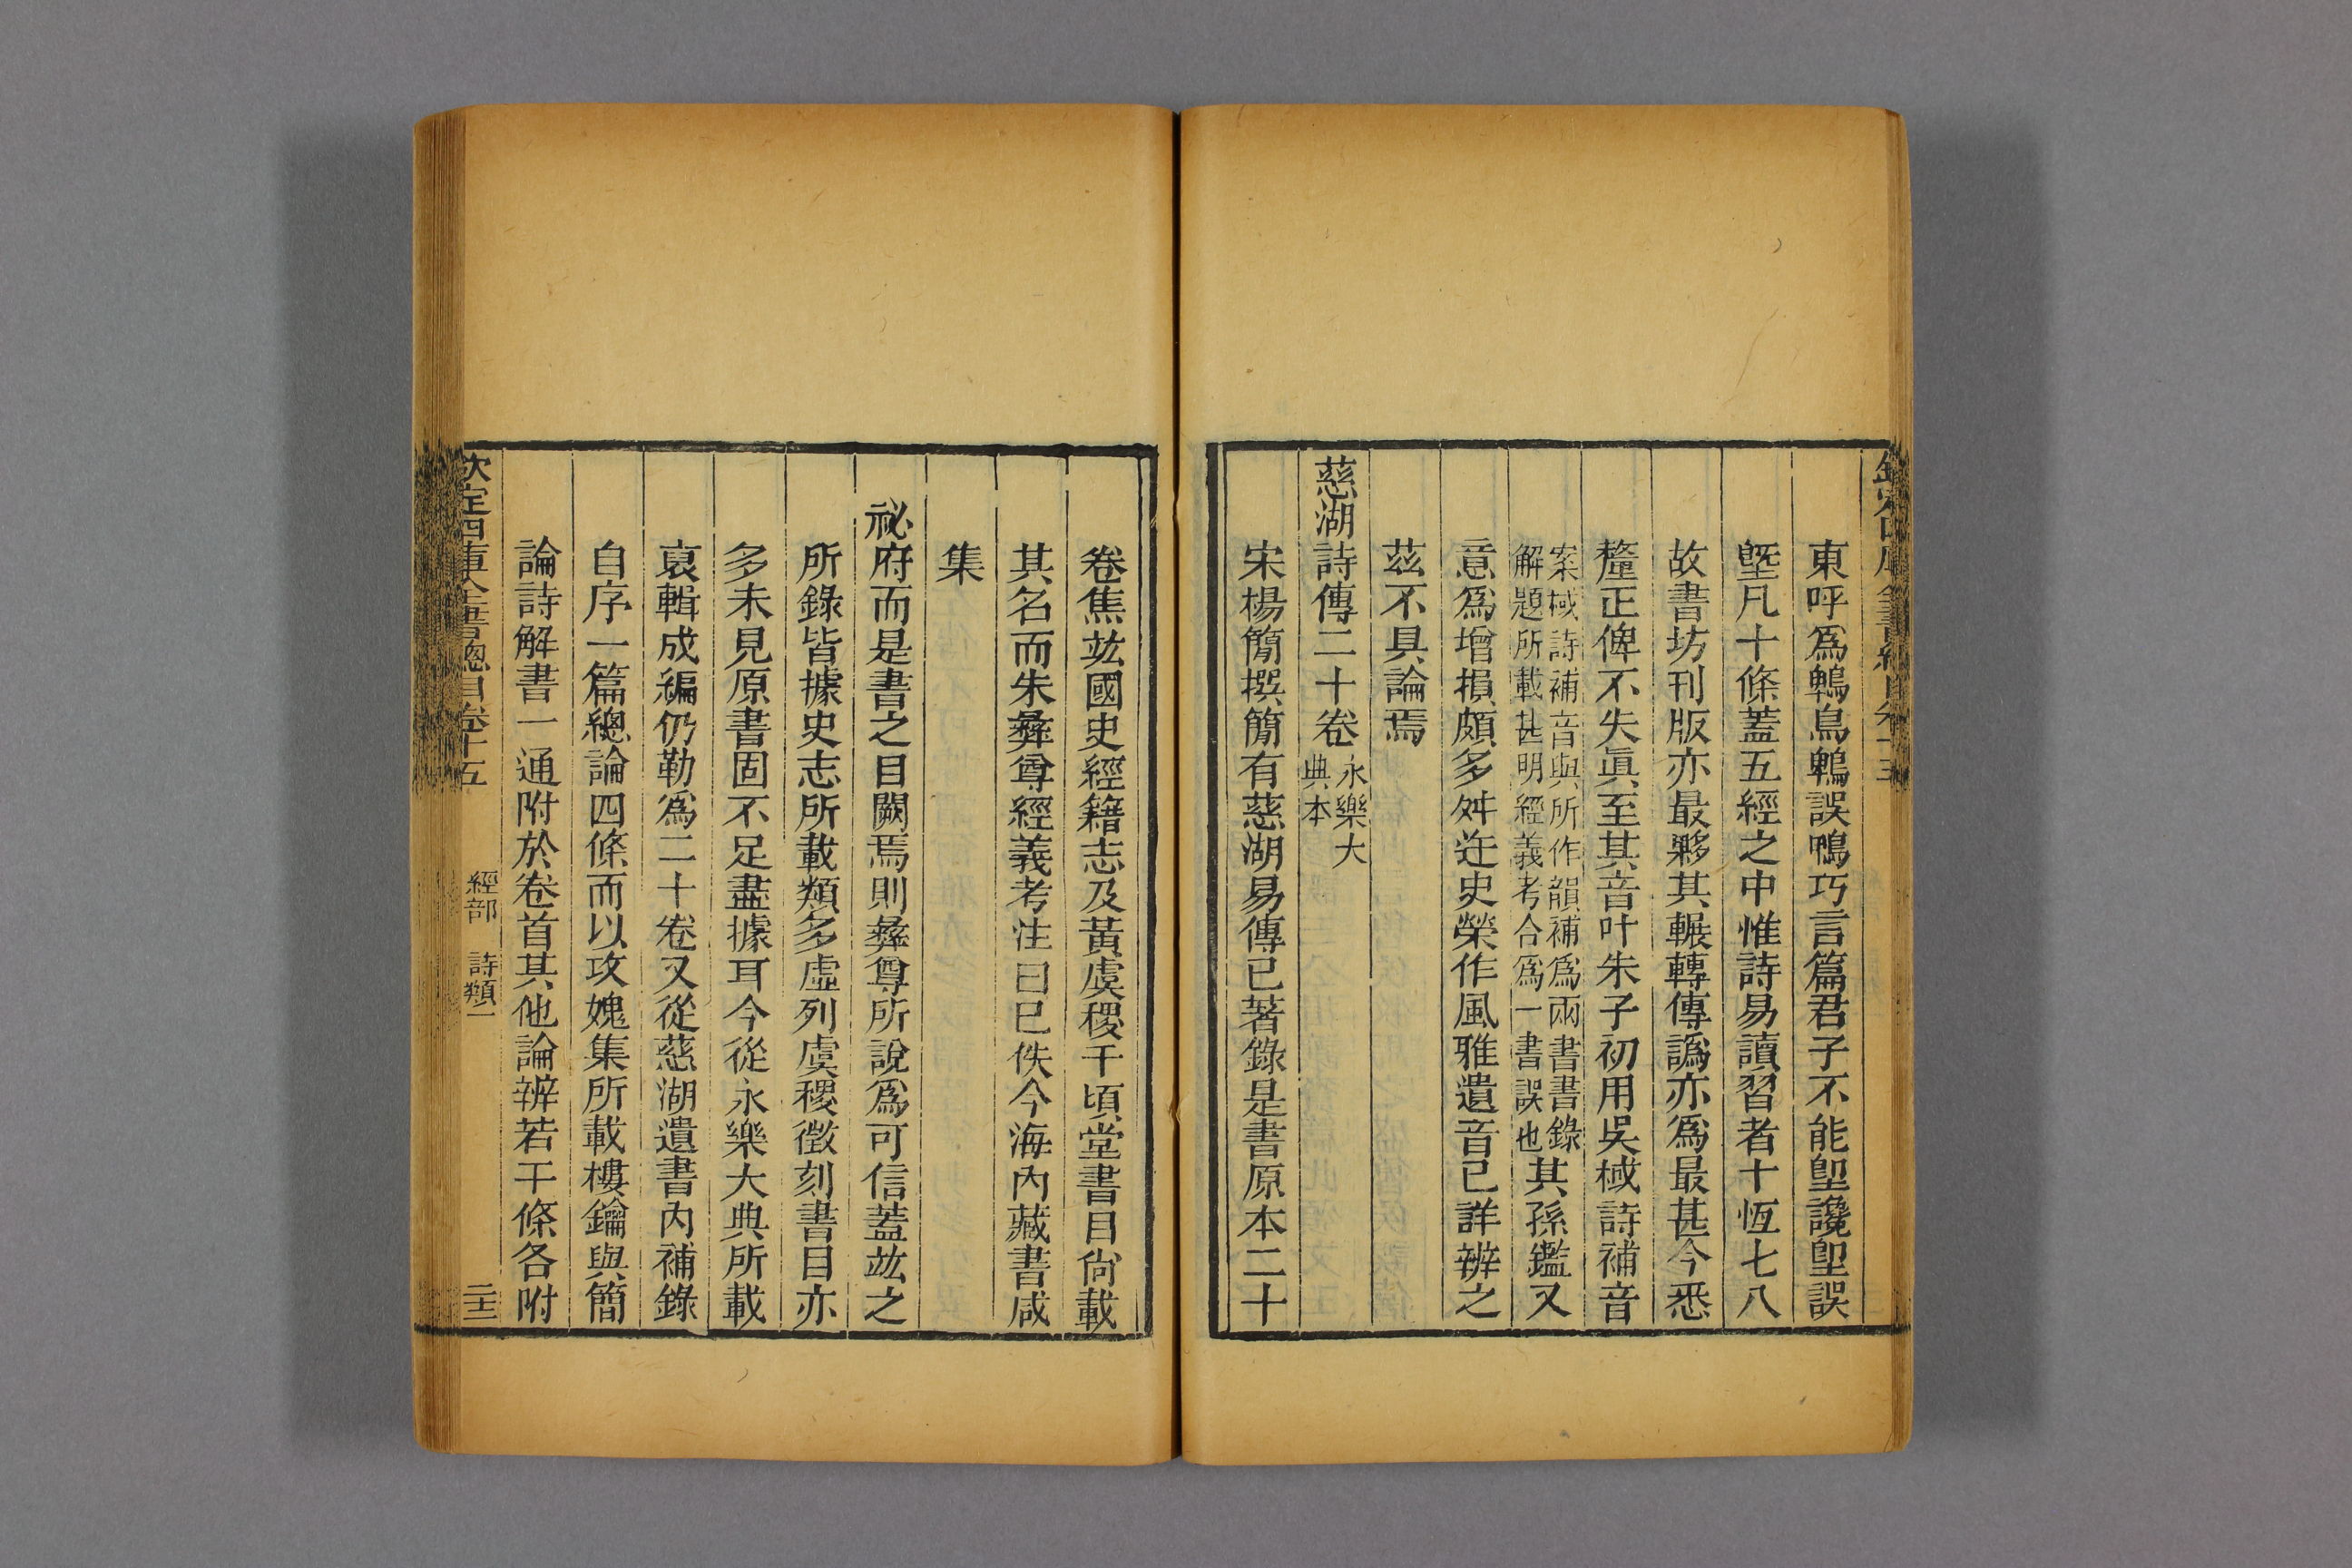 東呼爲鵯鳥鵯誤鴨巧言篇君子不能堲讒堲誤
塈凡十條蓋五經之中惟詩易讀習者十恆七八
故書坊刊版亦最夥其輾轉傳譌亦爲最甚今悉
釐正俾不失眞至其音叶朱子初用吳棫詩補音
案棫詩補音與所作韻補爲兩書書錄
解題所載甚明經義考合爲一書誤也
其孫鑑又
意爲增損頗多舛迕史榮作風雅遺音已詳辨之
茲不具論焉
慈湖詩傳二十卷
永樂大
典本
宋楊簡撰簡有慈湖易傳已著錄是書原本二十
卷焦竑國史經籍志及黃虞稷千頃堂書目尙載
其名而朱彝尊經義考注曰已佚今海內藏書咸
集
祕府而是書之目闕焉則彝尊所說爲可信蓋竑之
所錄皆據史志所載類多虛列虞稷徵刻書目亦
多未見原書固不足盡據耳今從永樂大典所載
裒輯成編仍勒爲二十卷又從慈湖遺書內補錄
自序一篇總論四條而以攻媿集所載樓鑰與簡
論詩解書一通附於卷首其他論辨若干條各附
欽定四庫全書總目卷十五
經部 詩類一
二十三